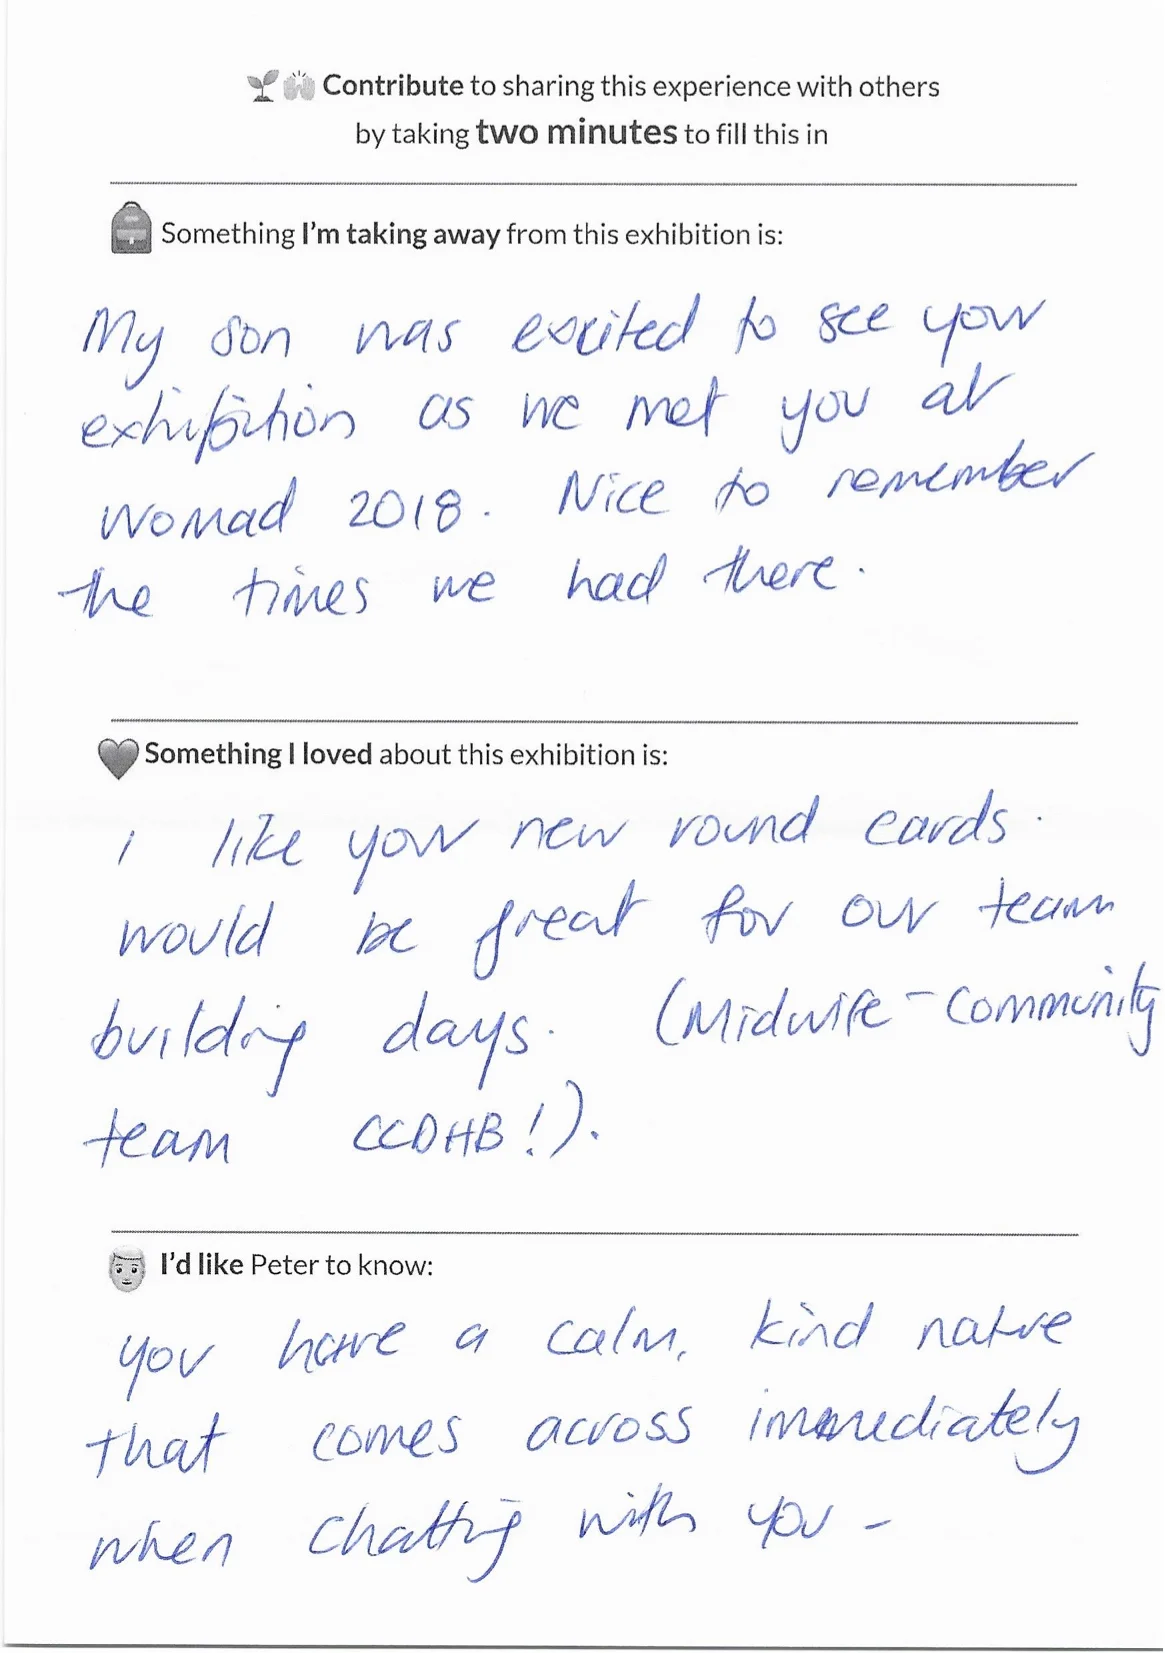 Contribute to sharing this experience with others
by taking two minutes to fill this in
Something I'm taking away from this exhibition is:
My son was excited to see your
exhibition as we met you at
Womad 2018. Nice to remember
the times we had there.
Something I loved about this exhibition is:
I like your new round cards.
would be great for our team
building days. (Midwife - Community
team CCDHB!).
I'd like Peter to know:
you have a calm, kind nature
that comes across immediately
when chatting with you -